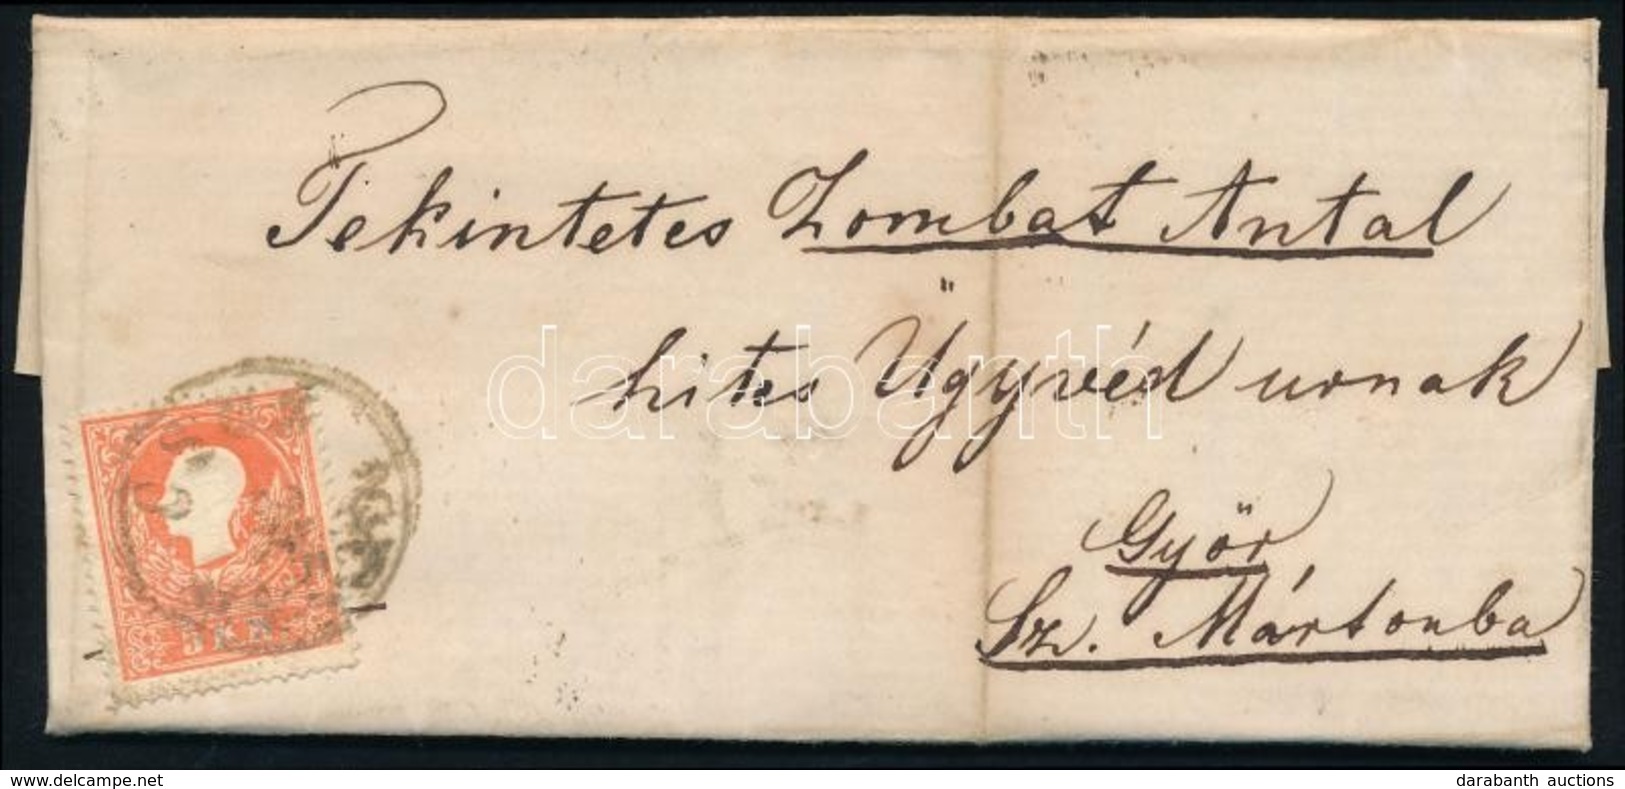 Tekintetes Zombat Antal
hites Ügyvéd urnak
Győr
Sz. Mártonba
5 KR.
darabanth
www.darabanth.com
darabanth auctions